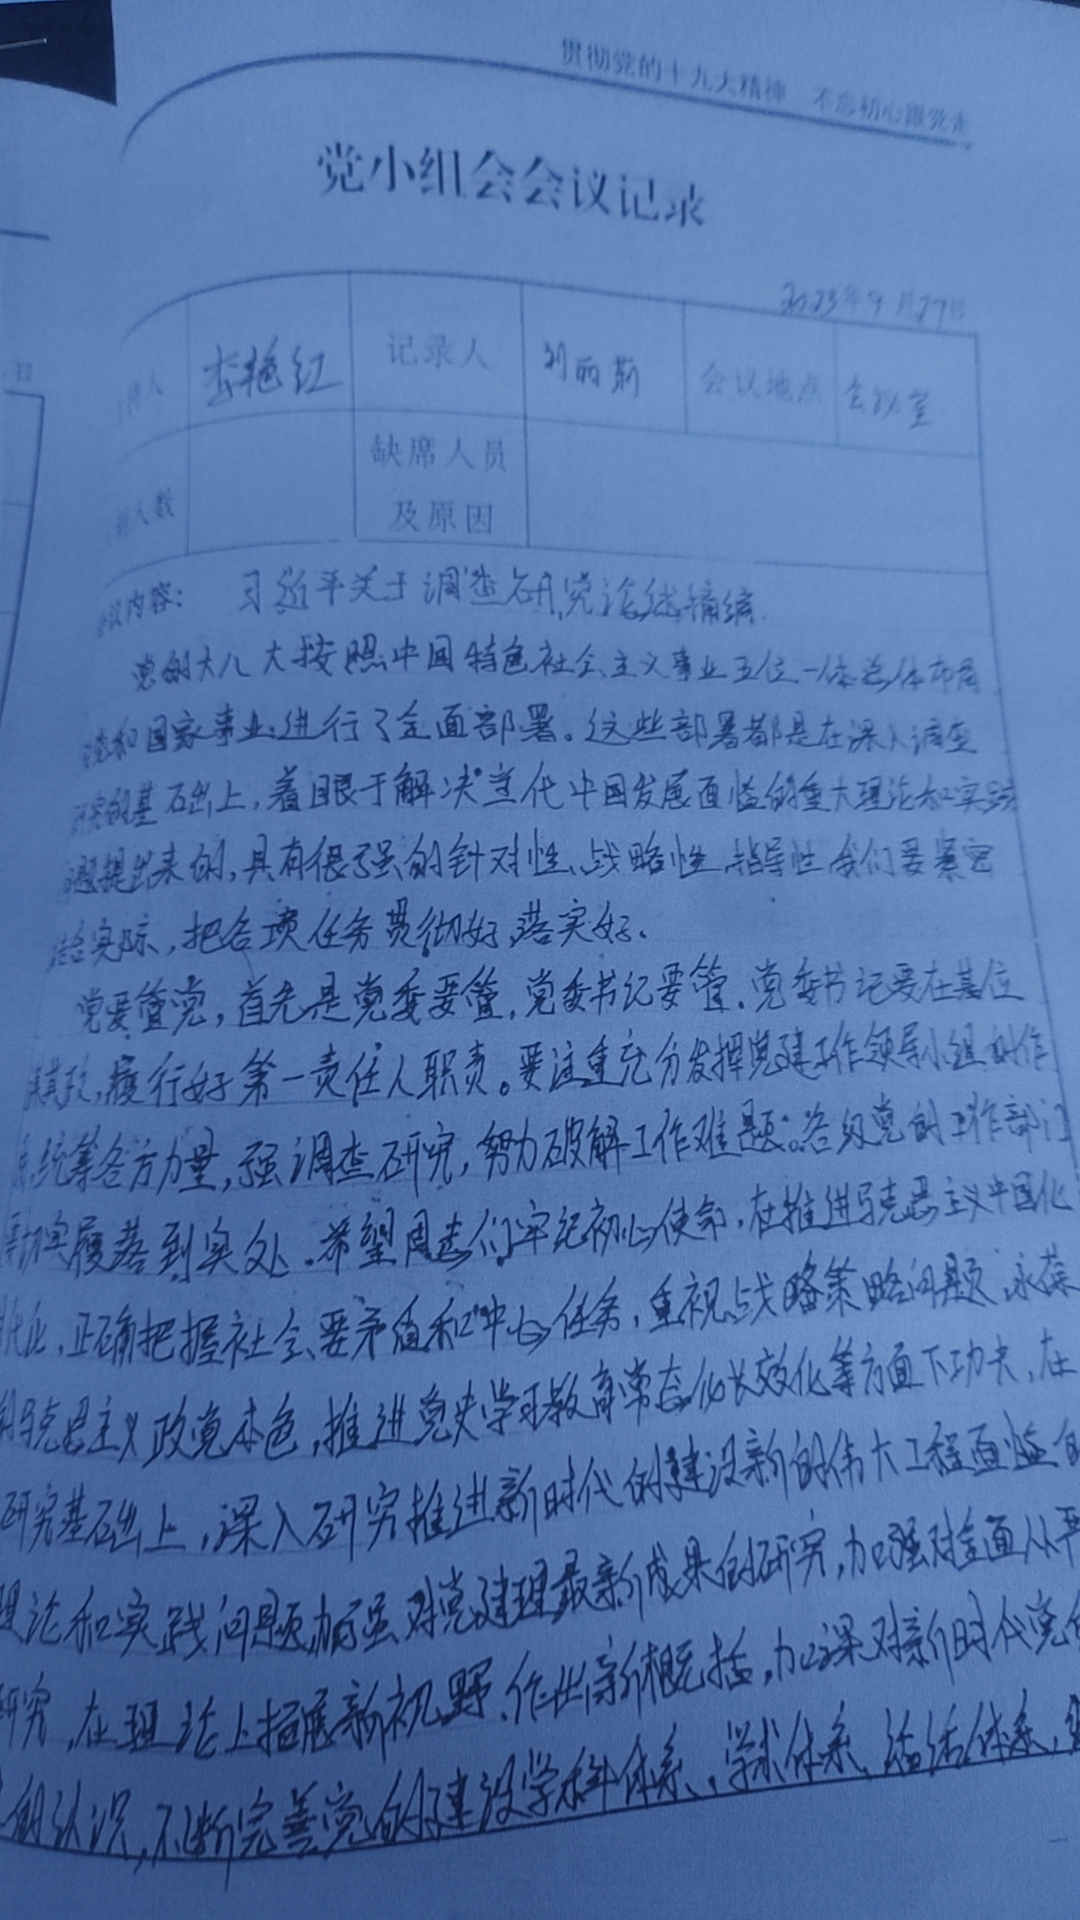 贯彻党的十九大精神 不忘初心跟党走
党小组会会议记录
2023年9月27日
日
持人 李艳红 记录人 刘丽斯 会议地点 会议室
人数 缺席人员
及原因
会议内容: 习近平关于调查研究论述摘编
党的大八大按照中国特色社会主义事业五位一体总体布局
党和国家事业进行了全面部署。这些部署都是在深入调查
研究的基础上,着眼于解决当代中国发展面临的重大理论和实践
题提出来的,具有很强的针对性、战略性、指导性 我们要紧密
结合实际,把各项任务贯彻好、落实好、
党要管党,首先是党委要管,党委书记要管、党委书记要在其位
谋其政,履行好第一责任人职责。要注重充分发挥党建工作领导小组的作
统筹各方力量,强调查研究,努力破解工作难题。各级党的工作部门
切实履落到实处、希望同志们牢记初心使命、在推进马克思主义中国化
时代化,正确把握社会要矛盾和中心任务,重视战略策略问题、永葆
马克思主义政党本色,推进党史学习教育常态化长效化等方面下功夫,在
研究基础上,深入研究推进新时代的建设新的伟大工程面临的
理论和实践问题,加强对党建理最新成果的研究,加强对全面从严
研究,在理论上拓展新视野、作出新概括,加深对新时代党的
的认识,不断完善党的建设学科体系、学术体系、话语体系,